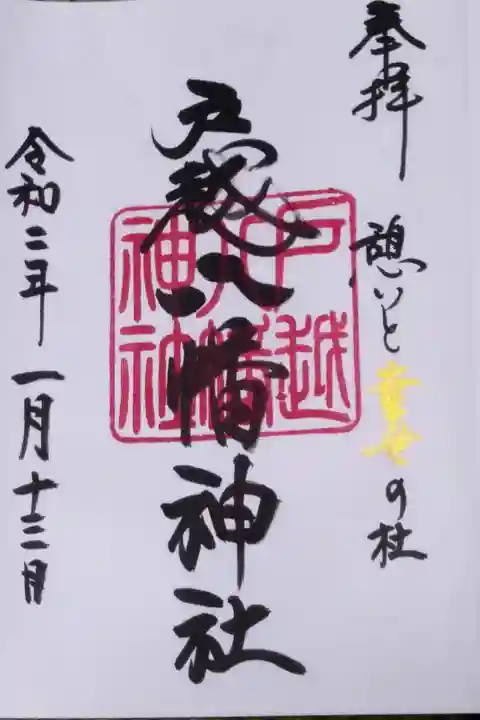 奉拝 憩いと幸せの杜
戸越八幡神社
戸越八幡神社
令和二年一月十三日